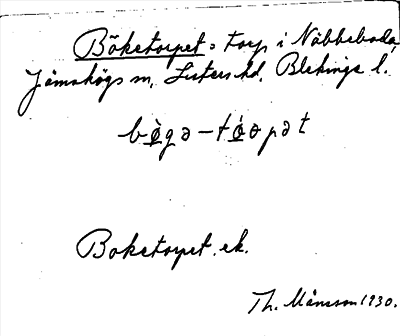 Böketorpet: torp i Näbbeboda,
Jämshögs sn, Listers hd, Blekinge l.
bø̀gə-tó̤əpət
Boketorpet. ek.
Th. Månsson 1930.